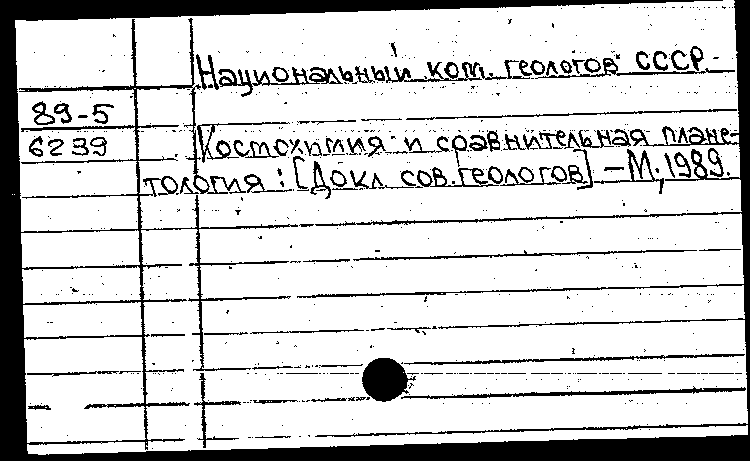 Национальный ком. геологов СССР.-
89-5
6239
Костохимия и сравнительная плане-
тология : [Докл сов. геологов] - М., 1989.